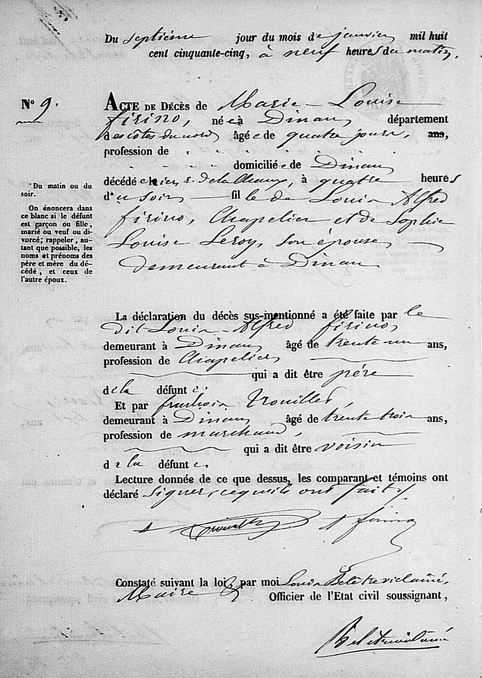 Du septième jour du mois de janvier mil huit
cent cinquante-cinq, à neuf heures du matin,
N° 9.
ACTE DE DÉCÈS de Marie-Louise
firino, née à Dinan, département
des côtes du nord, âgée de quatre jours, ans,
profession de
domiciliée de Dinan
décédée hier à quatre heures
du soir fille de Louis Alfred
firino, Chapelier et de Sophie
Louise Leroy, son épouse,
demeurant à Dinan
* Du matin ou du
soir.
On énoncera dans
ce blanc si le défunt
est garçon ou fille,
marié ou veuf ou di-
vorcé; rappeler, au-
tant que possible, les
noms et prénoms des
père et mère du dé-
cédé, et ceux de
l'autre époux.
La déclaration du décès sus-mentionné a été faite par le
dit Louis-Alfred firino,
demeurant à Dinan, âgé de trente un ans,
profession de Chapelier,
qui a dit être père
de la défunte
Et par françois
demeurant à Dinan âgé de trente trois ans,
profession de marchand,
qui a dit être voisin
de la défunte.
Lecture donnée de ce que dessus, les comparant et témoins ont
déclaré signer, ce qu'ils ont fait,
firino
Constaté suivant la loi, par moi Louis
Maire Officier de l'Etat civil soussignant,